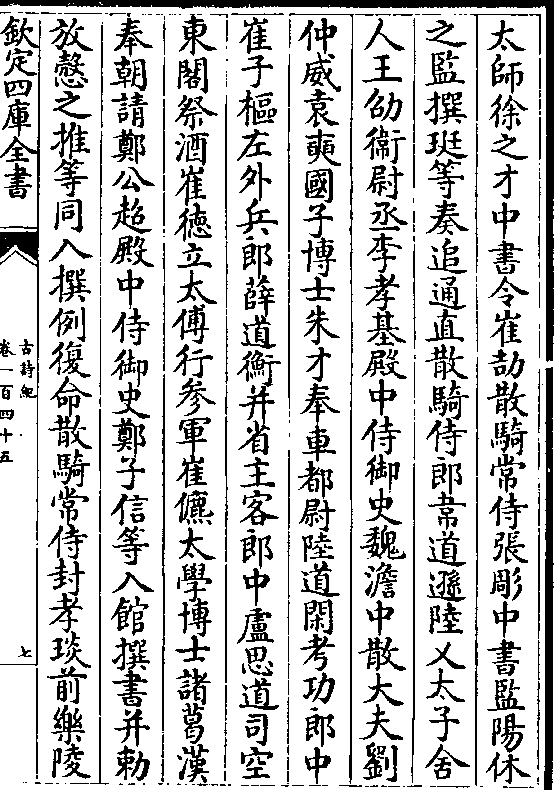 太師徐之才中書令崔劼散騎常侍張彫中書監陽休
之監撰珽等奏追通直散騎侍郎韋道遜陸乂太子舍
人王劭衞尉丞李孝基殿中侍御史魏澹中散大夫劉
仲威袁奭國子博士朱才奉車都尉陸道閑考功郎中
崔子樞左外兵郎薛道衡并省主客郎中盧思道司空
東閣祭酒崔徳立太傅行參軍崔儦太學博士諸葛漢
奉朝請鄭公超殿中侍御史鄭子信等入館撰書并勅
放慤之推等同入撰例復命散騎常侍封孝琰前樂陵
欽定四庫全書
古詩紀
卷一百四十五
七